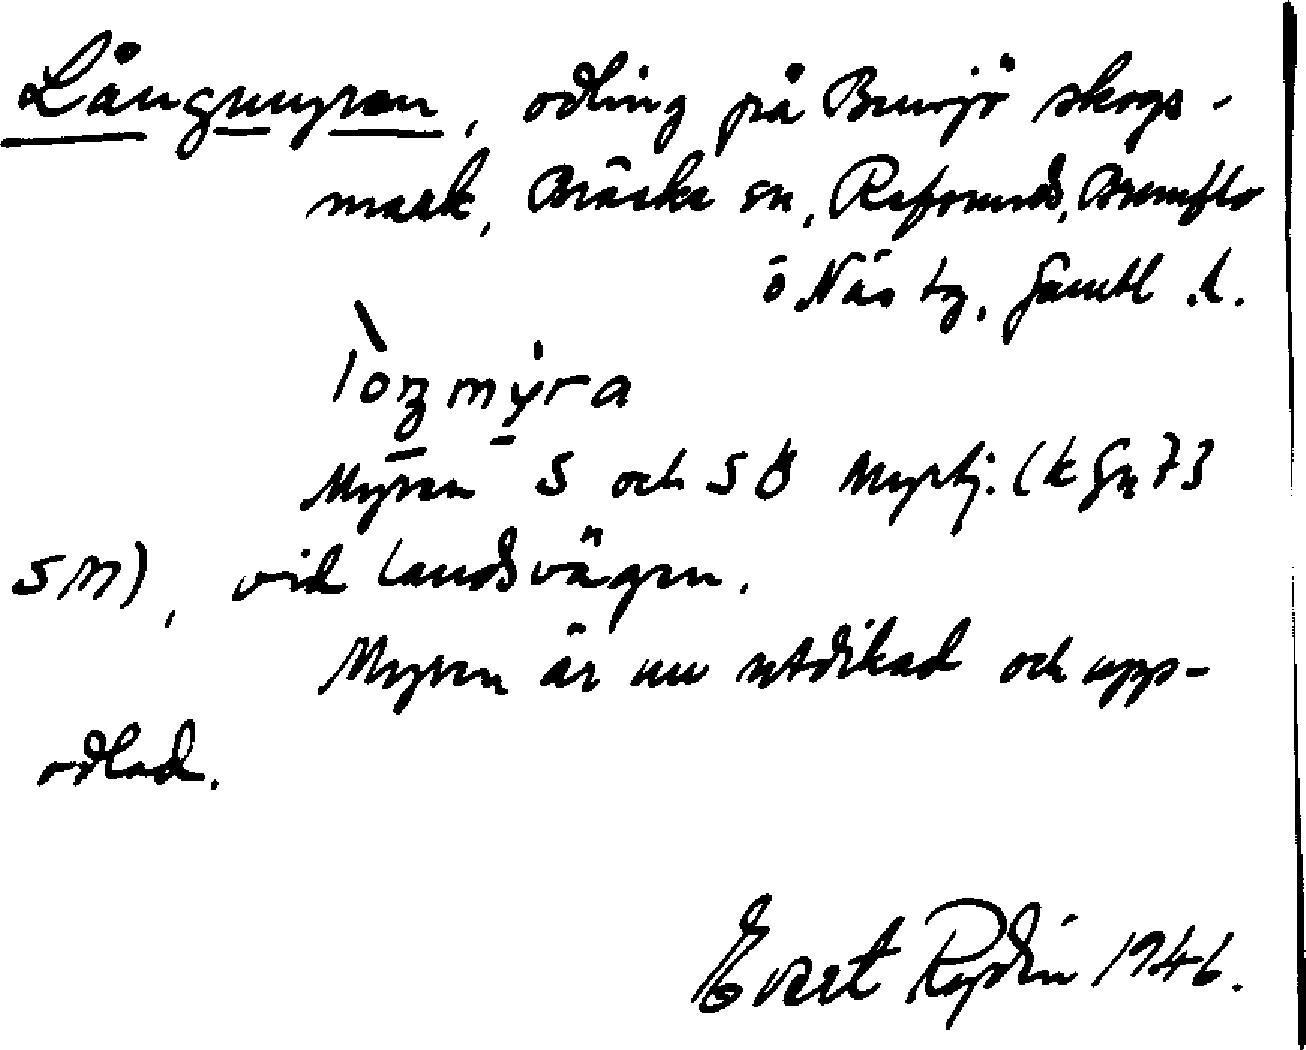 Långmyren, odling på Bensjö skogs-
mark, Bräcke sn, Refsunds, Brunflo
o Näs tg. Jämtl. l.
loŋmyra
Myren S och SÖ Myrtj. (k Gn 73
SM), vid landsvägen.
Myren är nu utdikad och upp-
odlad.
Evert Rodin 1946.